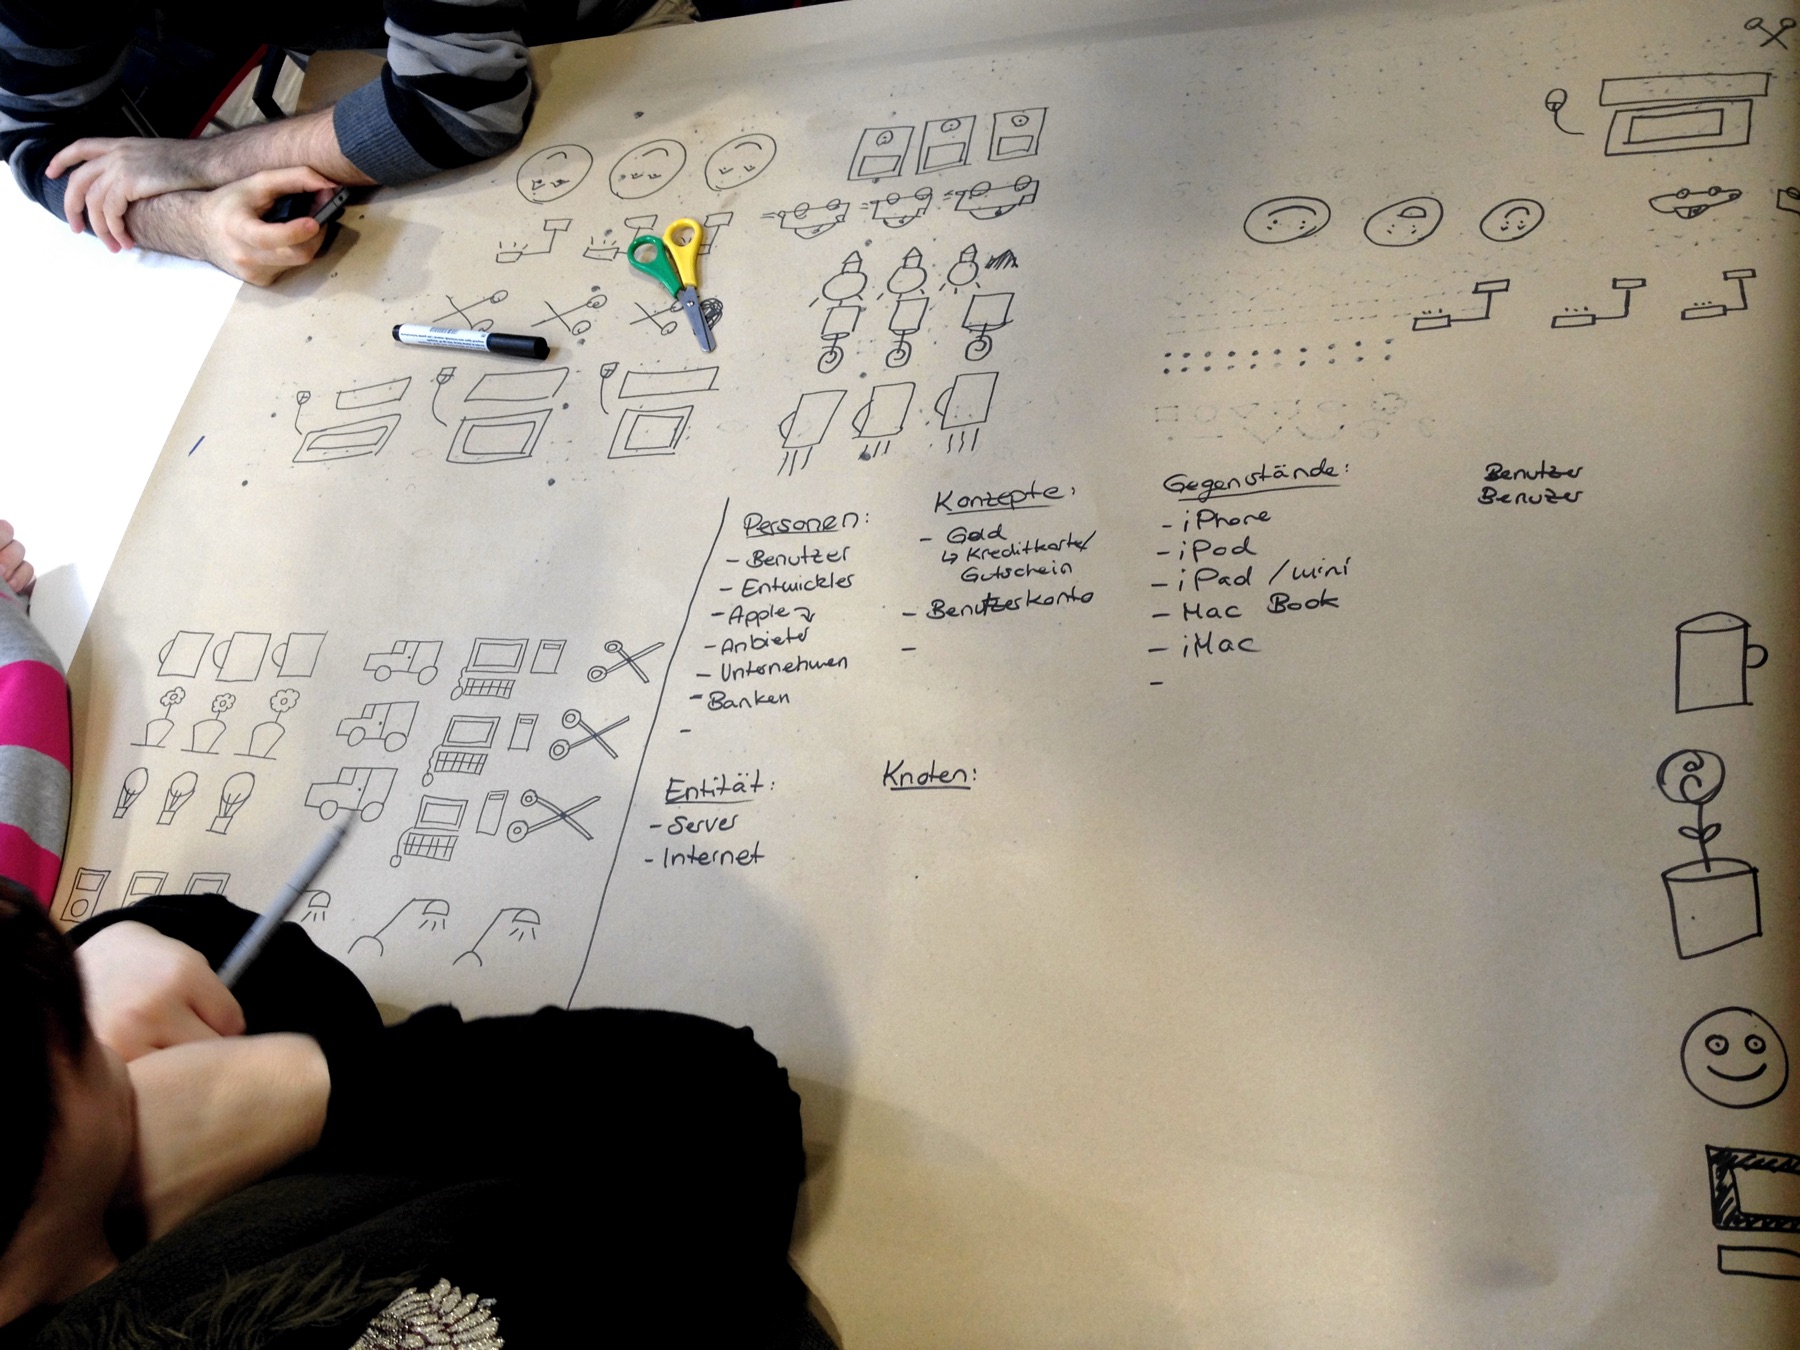 Personen:
- Benutzer
- Entwickler
- Apple
- Anbieter
- Unternehmen
- Banken
-
Konzepte:
- Geld
↳ Kreditkarte/
Gutschein
- Benutzerkonto
-
Gegenstände:
- iPhone
- iPod
- iPad / mini
- Mac Book
- iMac
-
Benutzer
Benuzer
Entität:
- Server
- Internet
Knoten: